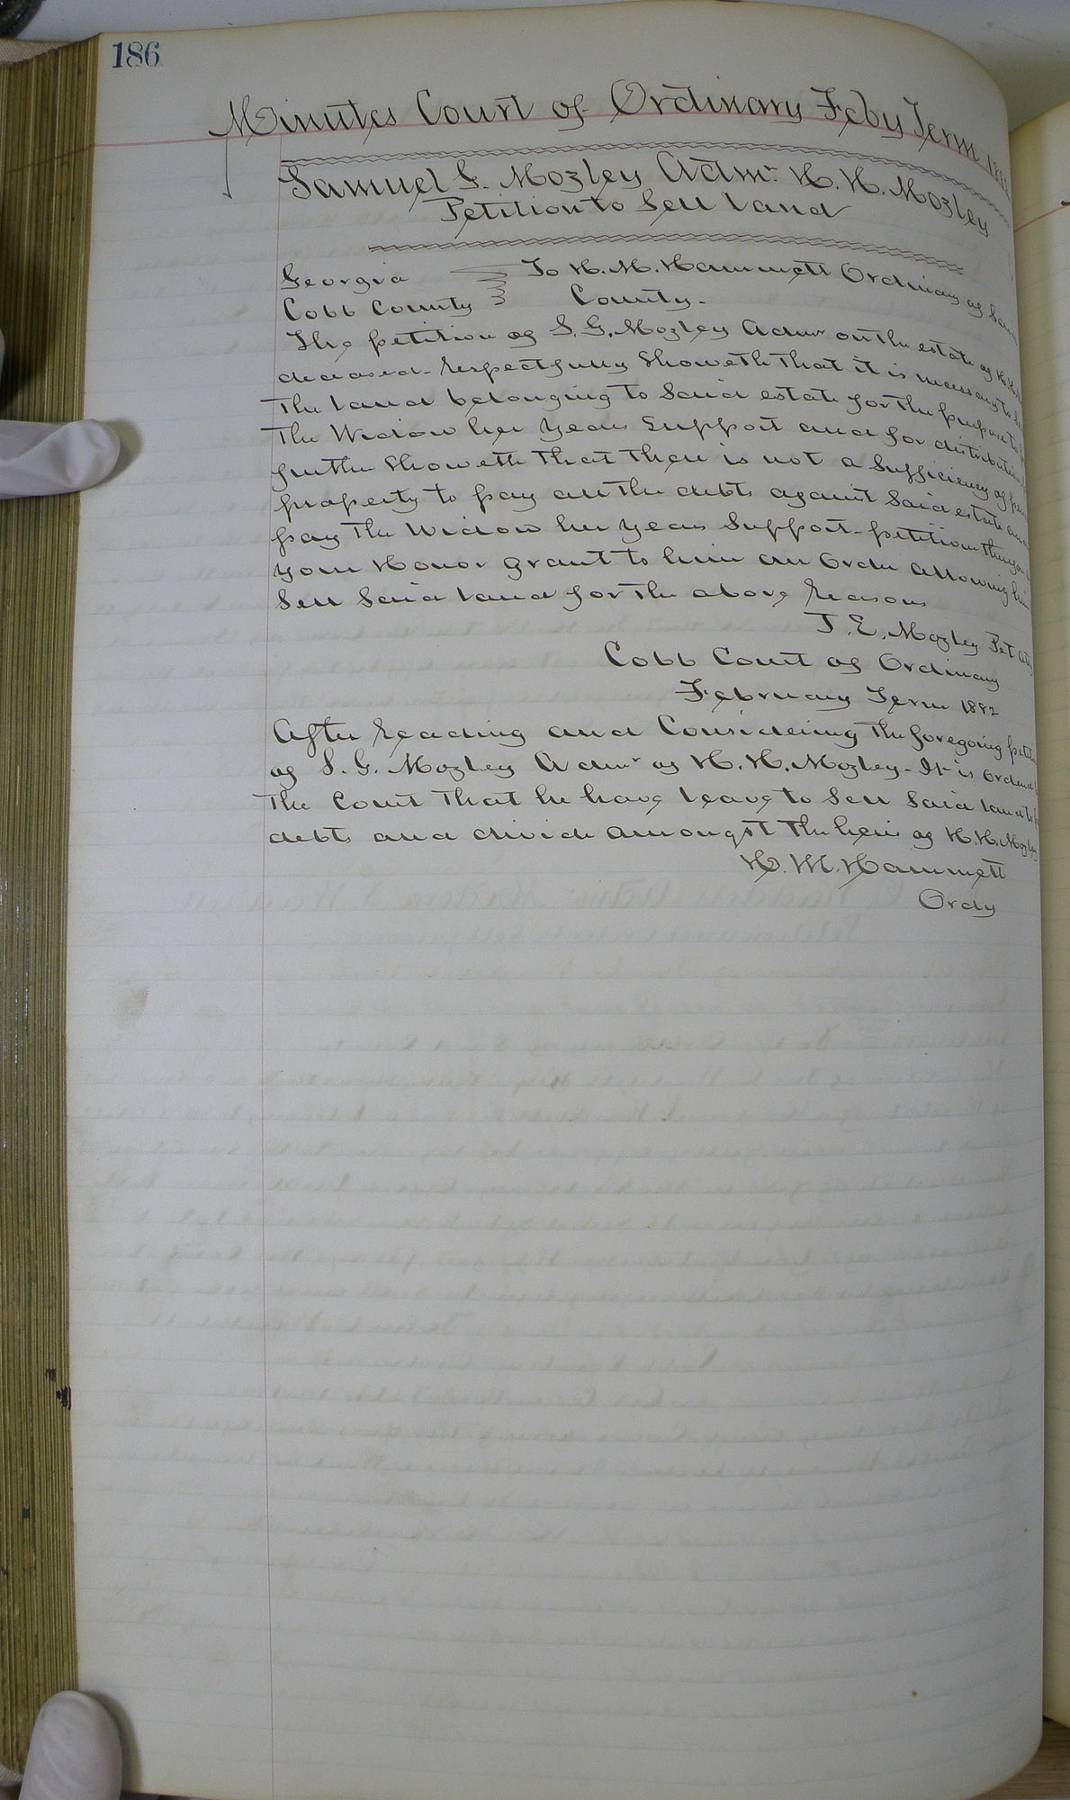 186
Minutes Court of Ordinary Feby Term 1882
Samuel G. Mozley Admr H. H. Mozley
Petition to Sell Land
Georgia To H. M. Hammett Ordinary of Said
Cobb County County.
The petition of S. G. Mozley Admr on the estate of H. H.
deceased - respectfully Showeth That it is necessary to
The Land belonging to Said estate for The purpose to
The Widow her years Support and for distribution
further Showeth That Their is not a Sufficiency of
property to pay all The debts against Said estate and
pay The Widow her years Support - petitioner
your Honor grant to him an Order allowing him
Sell Said Land for The above Reasons
T. E. Mozley Pet Atty
Cobb Court of Ordinary
February Term 1882
After Reading and Considering The foregoing
of S. G. Mozley Admr of H. H. Mozley - It is Ordered
The Court That he have Leave to Sell Said Land to
debts and divide amongst The heirs of H. H. Mozley
H. M. Hammett
Ordy